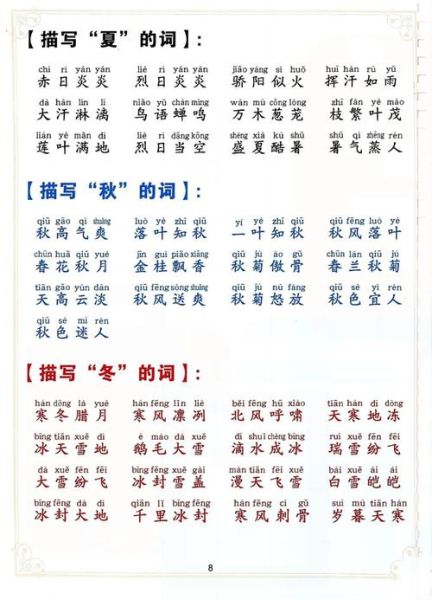 【描写“夏”的词】：
chì rì yán yán liè rì yán yán jiāo yáng sì huǒ huī hàn rú yǔ
赤日炎炎 烈日炎炎 骄阳似火 挥汗如雨
dà hàn lín lí niǎo yǔ chán míng wàn mù cōng lóng zhī fán yè mào
大汗淋漓 鸟语蝉鸣 万木葱茏 枝繁叶茂
lián yè mǎn dì liè rì dāng kōng shèng xià kù shǔ shǔ qì zhēng rén
莲叶满地 烈日当空 盛夏酷暑 暑气蒸人
【描写“秋”的词】：
qiū gāo qì shuǎng luò yè zhī qiū yí yè zhī qiū qiū fēng luò yè
秋高气爽 落叶知秋 一叶知秋 秋风落叶
chūn huā qiū yuè jīn guì piāo xiāng qiū jú ào gǔ chūn lán qiū jú
春花秋月 金桂飘香 秋菊傲骨 春兰秋菊
tiān gāo yún dàn qiū fēng sòng shuǎng qiū jú nù fàng qiū sè yí rén
天高云淡 秋风送爽 秋菊怒放 秋色宜人
qiū sè mí rén
秋色迷人
【描写“冬”的词】：
hán dōng là yuè hán fēng lǐn liè běi fēng hū xiào tiān hán dì dòng
寒冬腊月 寒风凛冽 北风呼啸 天寒地冻
bīng tiān xuě dì é máo dà xuě dī shuǐ chéng bīng ruì xuě fēn fēi
冰天雪地 鹅毛大雪 滴水成冰 瑞雪纷飞
dà xuě fēn fēi bīng fēng xuě gài màn tiān fēi xuě bái xuě ái ái
大雪纷飞 冰封雪盖 漫天飞雪 白雪皑皑
bīng fēng dà dì qiān lǐ bīng fēng hán fēng cì gǔ suì mù tiān hán
冰封大地 千里冰封 寒风刺骨 岁暮天寒
8